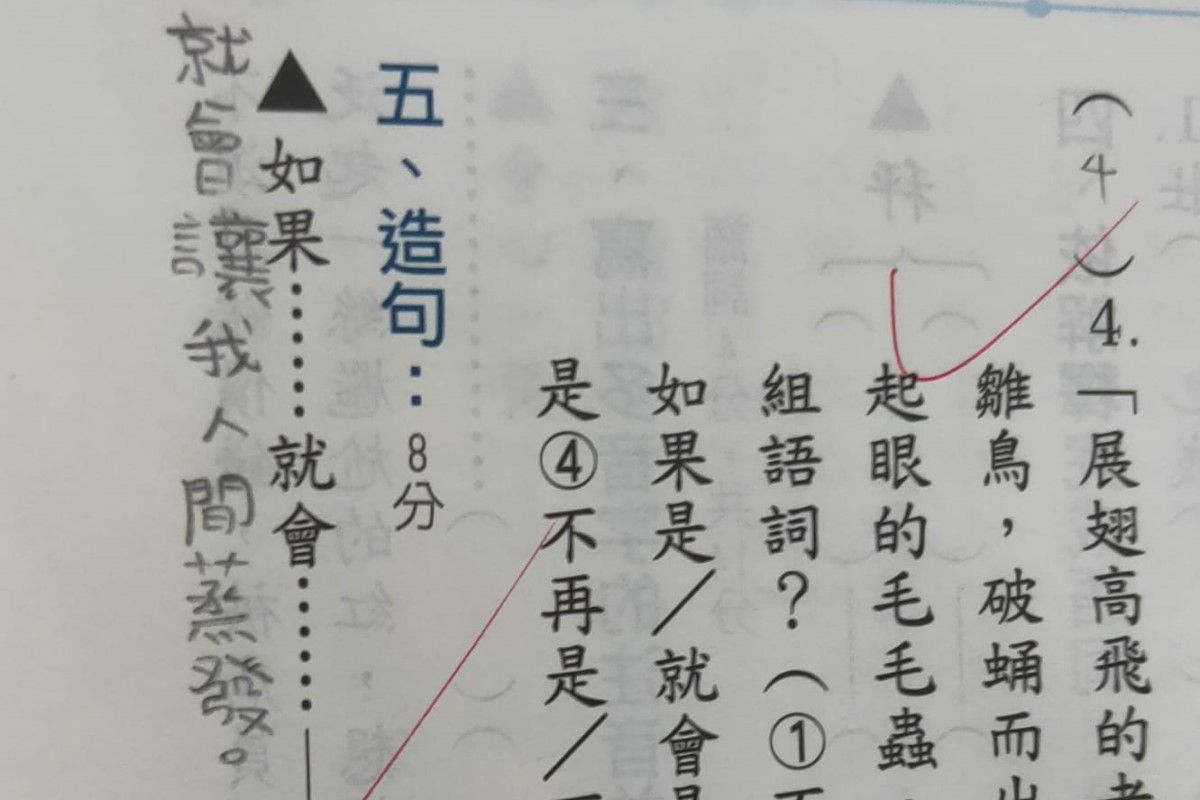 (4)4.「展翅高飛的
雛鳥，破蛹而
起眼的毛毛蟲
組語詞？(①
如果是／就會
是④不再是／
五、造句：8分
▲如果……就會……
就會讓我人間蒸發。